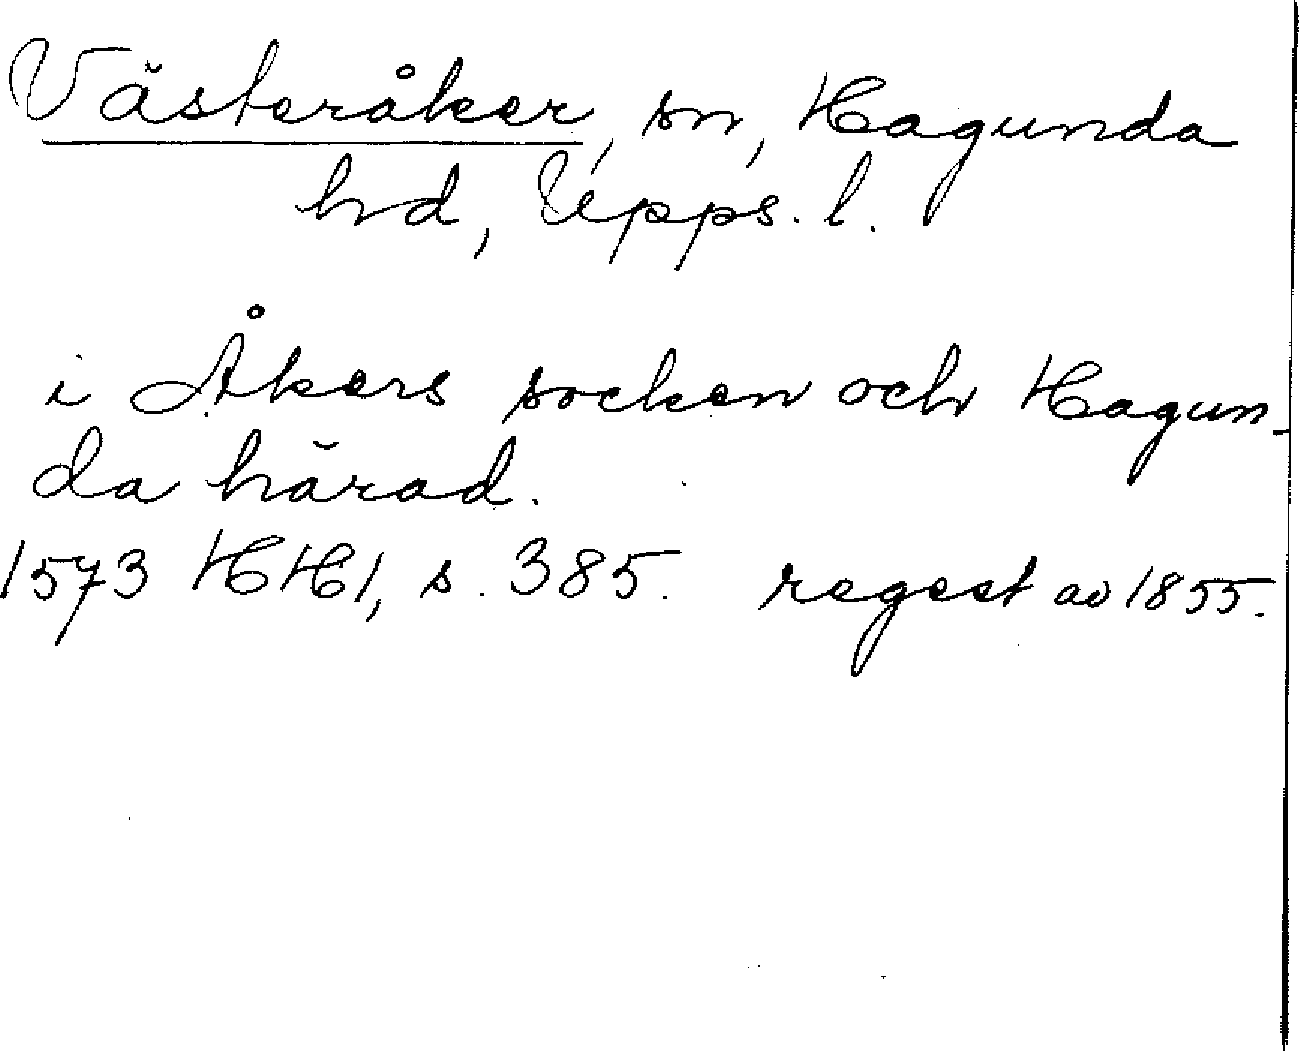 Västeråker, sn, Hagunda
hd, Upps. l.
i Åkers socken och Hagun-
da härad.
1573 HH1, s. 385. regest av 1855.